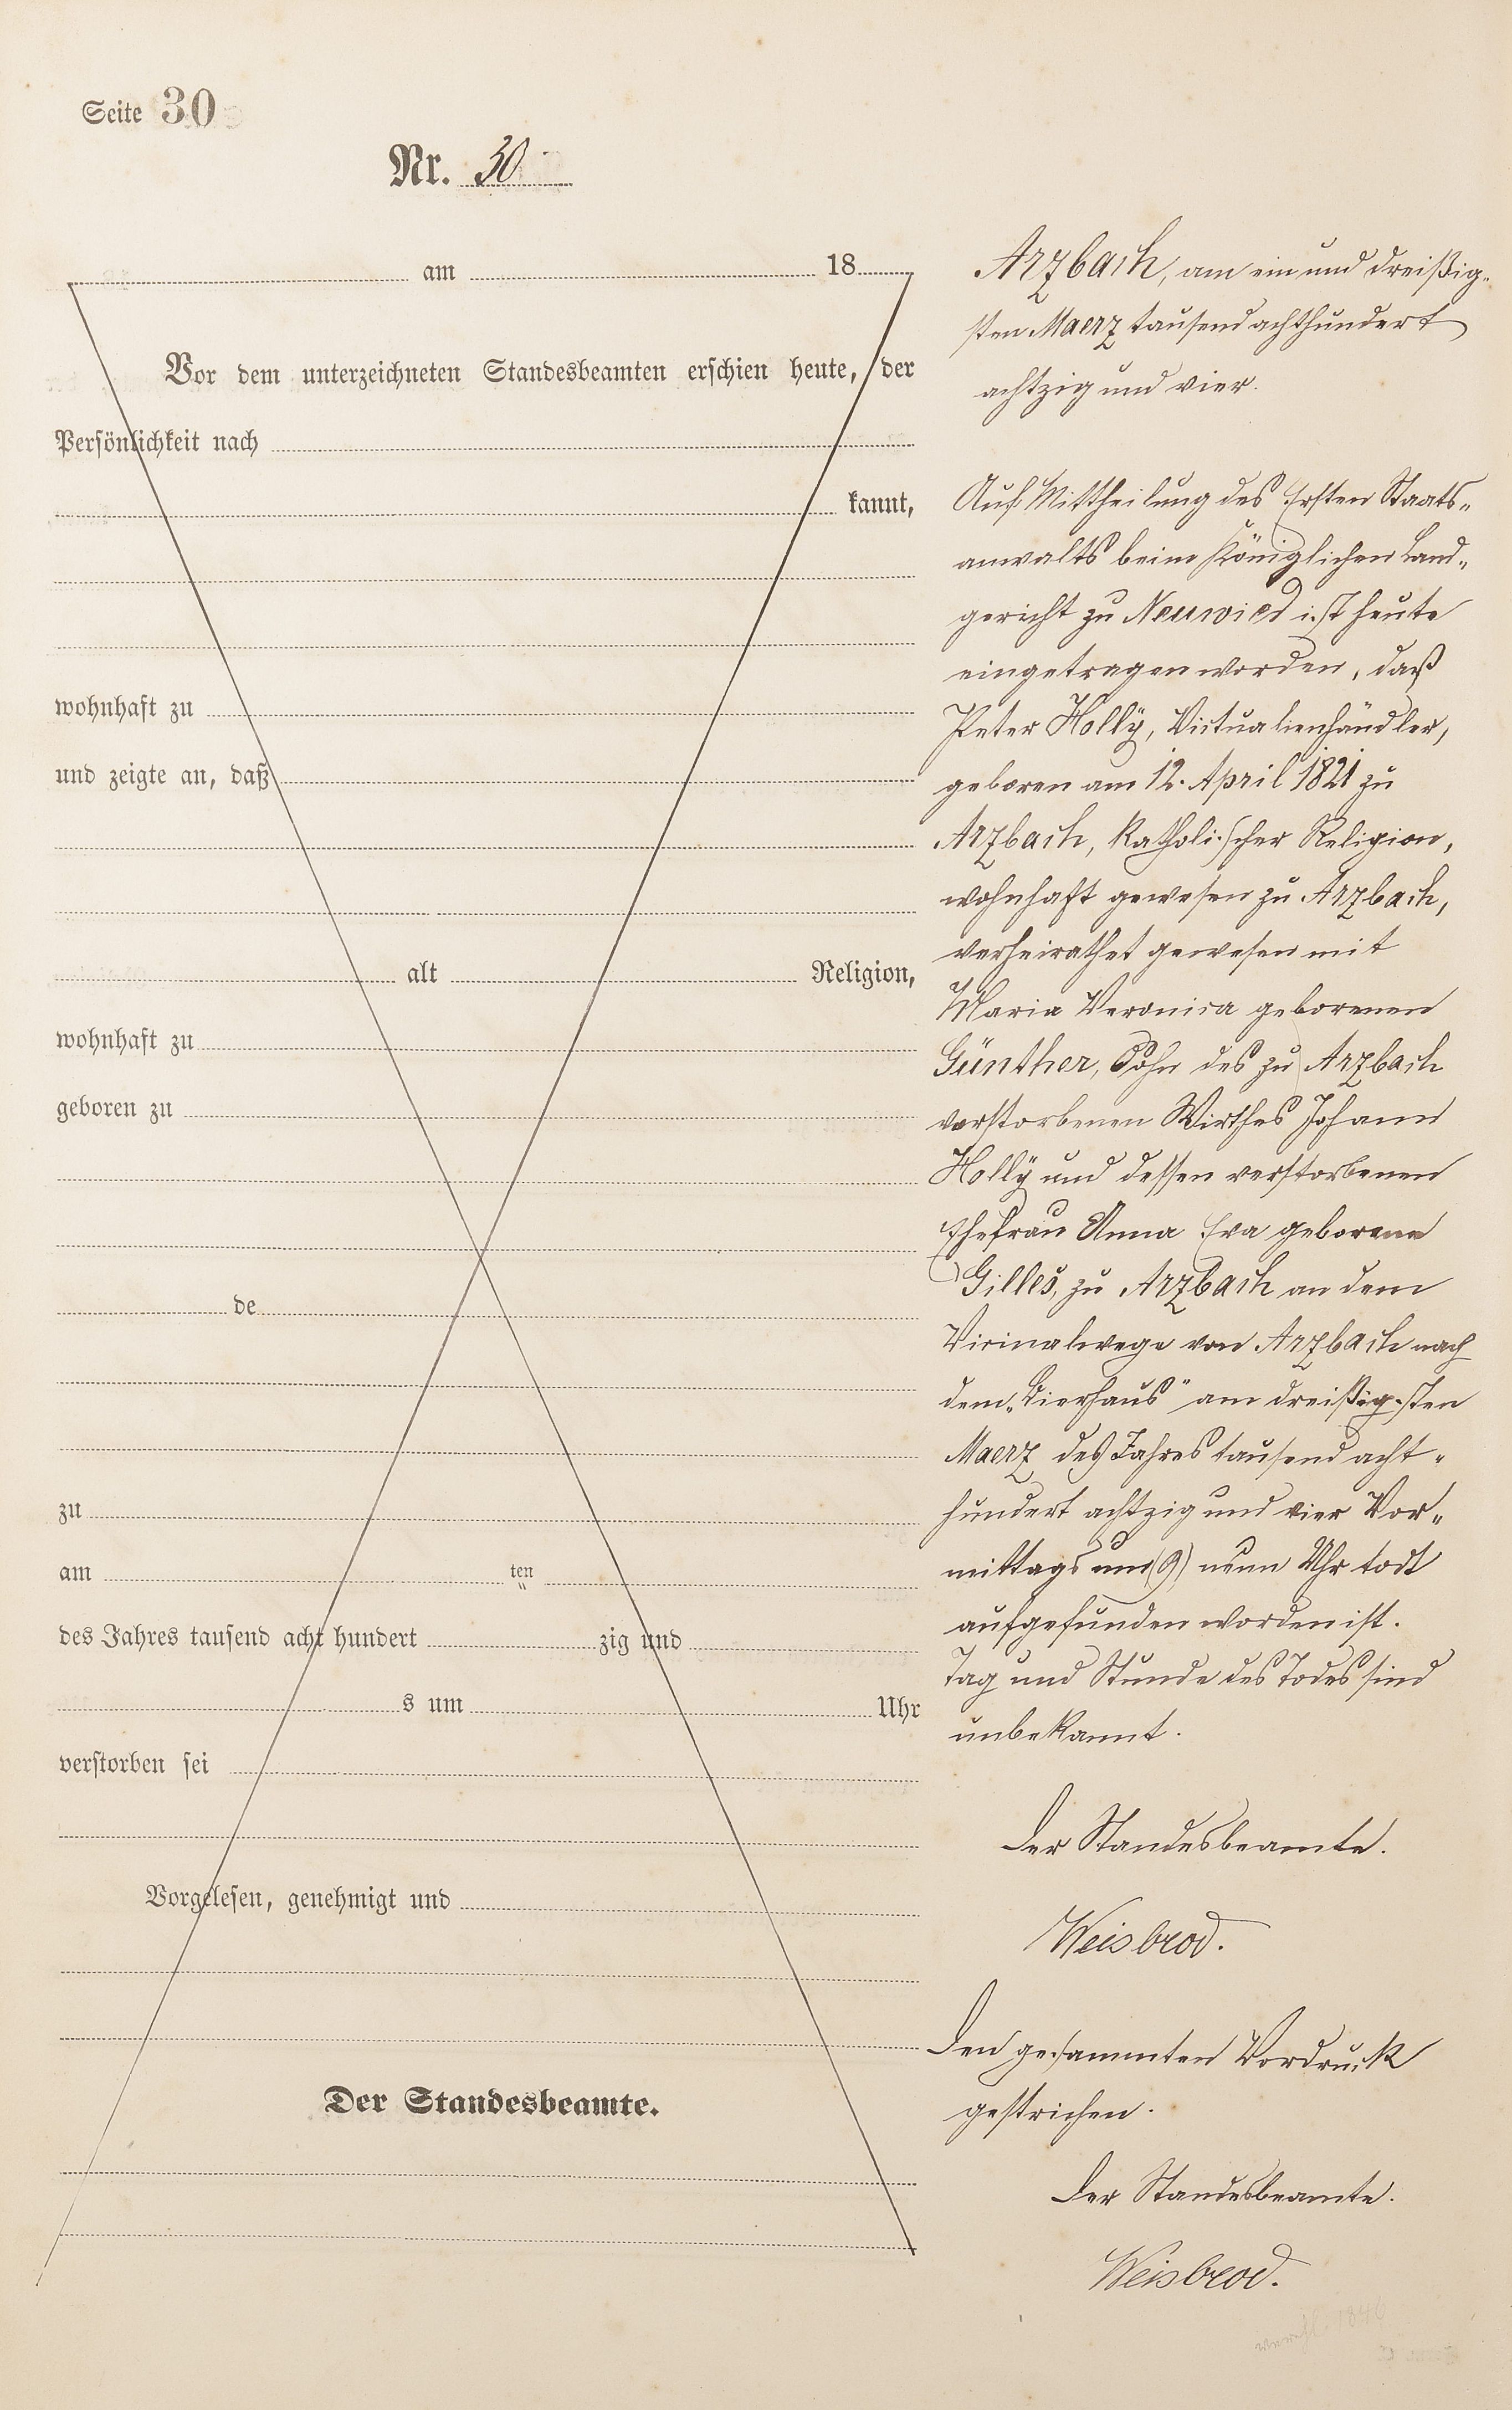 Seite 30
Nr. 30
am 18
Vor dem unterzeichneten Standesbeamten erschien heute, der
Persönlichkeit nach
kannt,
wohnhaft zu
und zeigte an, daß
alt Religion,
wohnhaft zu
geboren zu
de
zu
am ten
des Jahres tausend acht hundert zig und
s um Uhr
verstorben sei
Vorgelesen, genehmigt und
Der Standesbeamte.
Arzbach, am ein und dreißig-
sten Maerz tausend achthundert
achtzig und vier.
Auf Mittheilung des Ersten Staats-
anwalts beim Königlichen Land-
gericht zu Neuwied ist heute
eingetragen worden, daß
Peter Holly, Victualienhändler,
geboren am 12. April 1821 zu
Arzbach, katholischer Religion,
wohnhaft gewesen zu Arzbach,
verheirathet gewesen mit
Maria Veronica geborenen
Günther, Sohn des zu Arzbach
verstorbenen Wirthes Johann
Holly und dessen verstorbenen
Ehefrau Anna Eva geborene
Gilles, zu Arzbach an dem
Vicinalwege von Arzbach nach
dem „Bierhaus" am dreißigsten
Maerz des Jahres tausend acht-
hundert achtzig und vier Vor-
mittags um (9) neun Uhr todt
aufgefunden worden ist.
Tag und Stunde des Todes sind
unbekannt.
Der Standesbeamte.
Weisbrod.
Den gesammten Vordruck
gestrichen.
Der Standesbeamte.
Weisbrod.